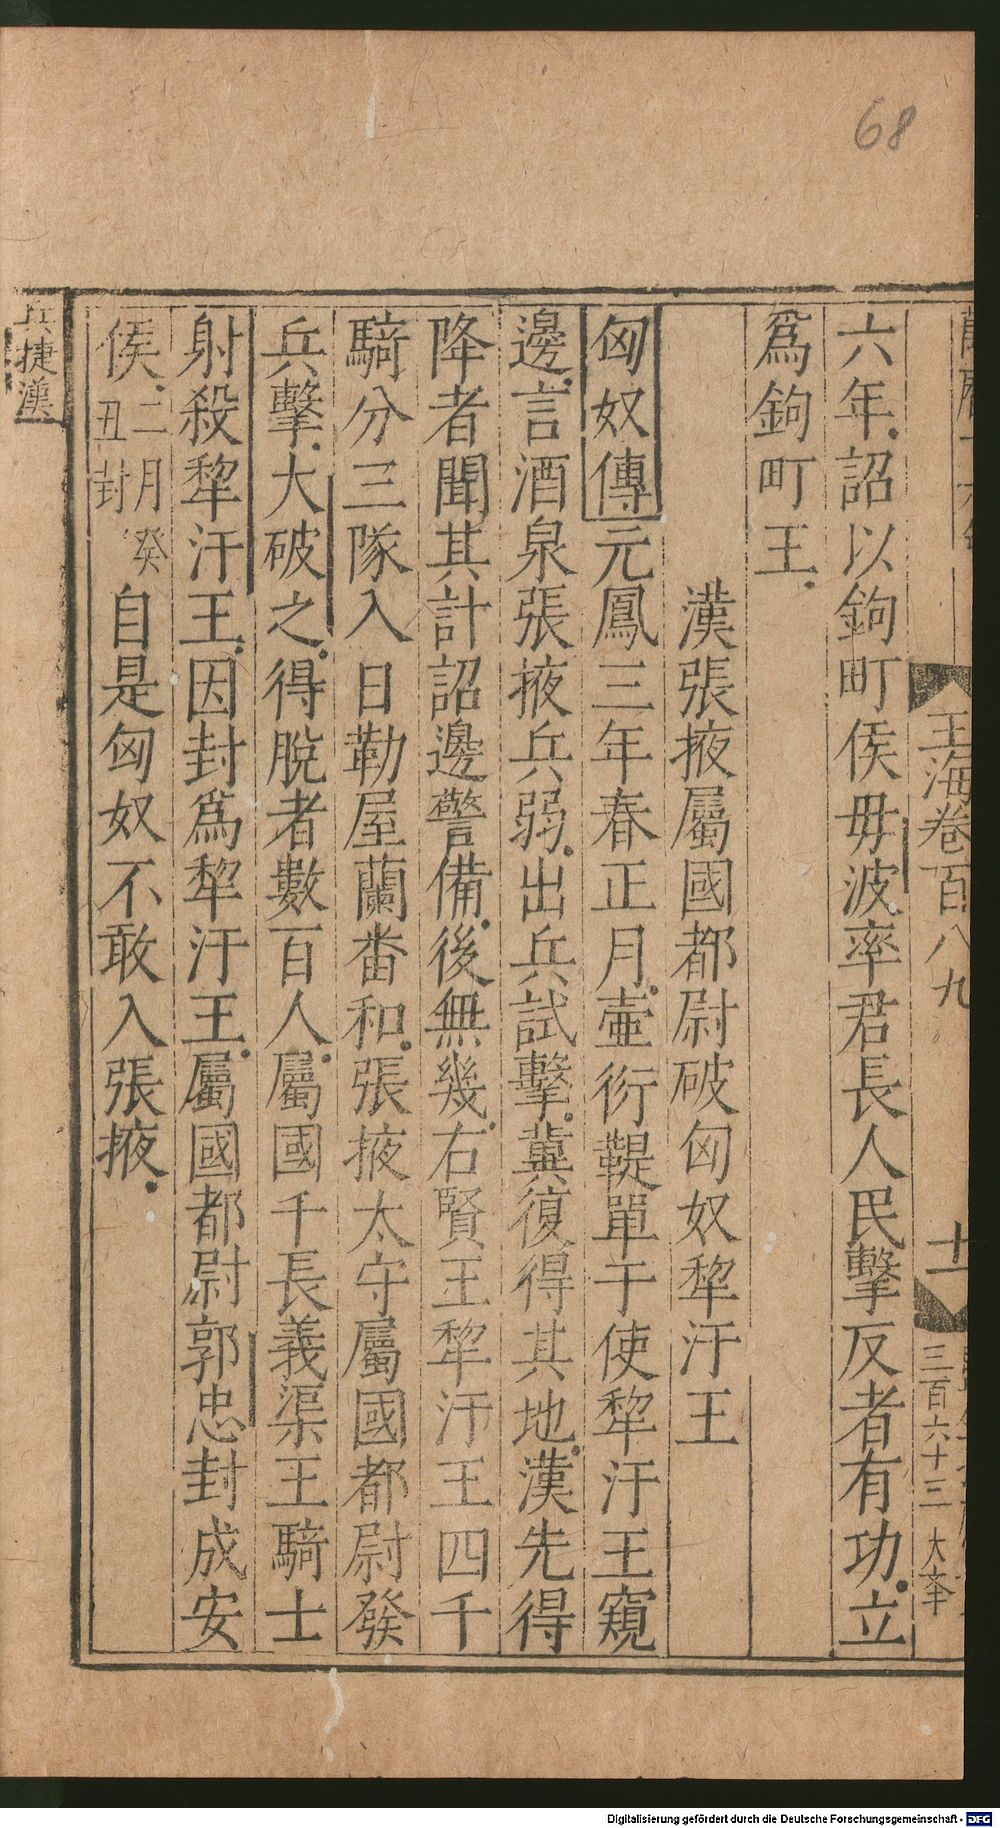 68
玉海卷百八九
十一
三百六十三 大辛
六年詔以鉤町侯毋波率君長人民擊反者有功立
爲鉤町王
漢張掖屬國都尉破匈奴犂汙王
匈奴傳元鳳三年春正月壷衍鞮單于使犂汙王窺
邊言酒泉張掖兵弱出兵試擊兾復得其地漢先得
降者聞其計詔邊警備後無幾右賢王犂汙王四千
騎分三隊入日勒屋蘭畨和張掖太守屬國都尉發
兵擊大破之得脫者數百人屬國千長義渠王騎士
射殺犂汙王因封爲犂汙王屬國都尉郭忠封成安
侯二月癸丑封自是匈奴不敢入張掖
兵捷漢
Digitalisierung gefördert durch die Deutsche Forschungsgemeinschaft - DFG